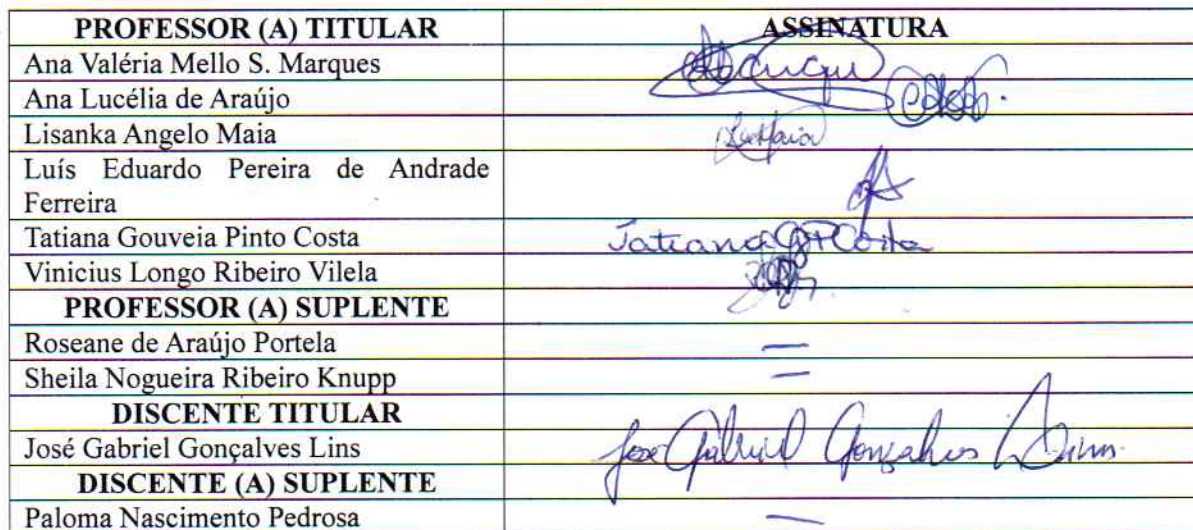 PROFESSOR (A) TITULAR ASSINATURA
Ana Valéria Mello S. Marques
Ana Lucélia de Araújo
Lisanka Angelo Maia
Luís Eduardo Pereira de Andrade
Ferreira
Tatiana Gouveia Pinto Costa Tatiana GP Costa
Vinicius Longo Ribeiro Vilela
PROFESSOR (A) SUPLENTE
Roseane de Araújo Portela —
Sheila Nogueira Ribeiro Knupp —
DISCENTE TITULAR
José Gabriel Gonçalves Lins José Gabriel Gonçalves Lins
DISCENTE (A) SUPLENTE
Paloma Nascimento Pedrosa —